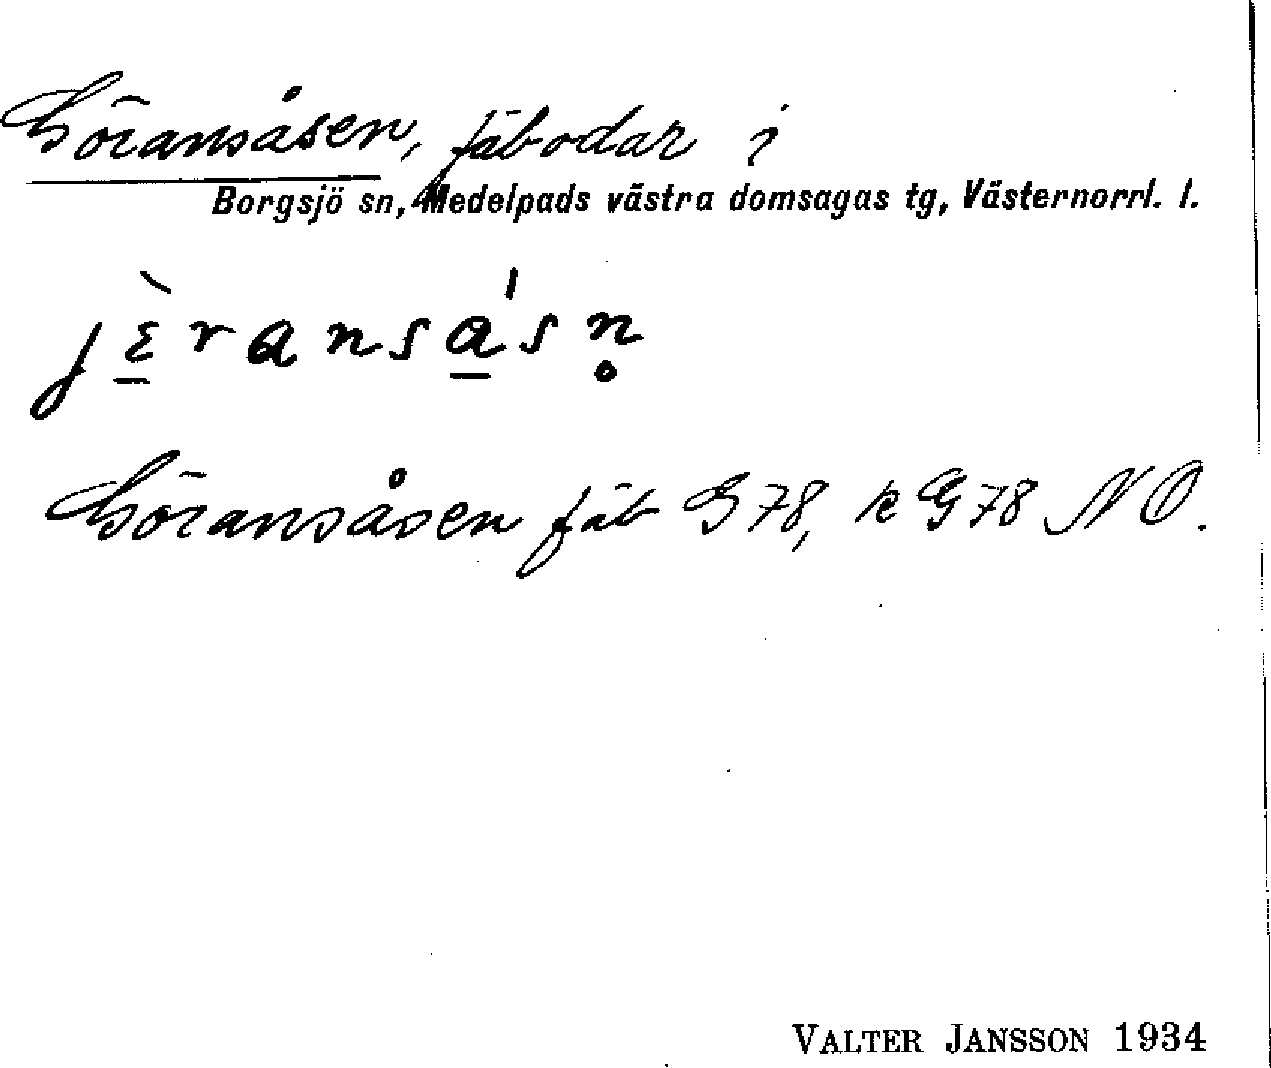 Göransåsen, fäbodar i
Borgsjö sn, Medelpads västra domsagas tg, Västernorrl. l.
jɛ̀ransásn̥
Göransåsen fäb G 78, k G 78 NO.
VALTER JANSSON 1934